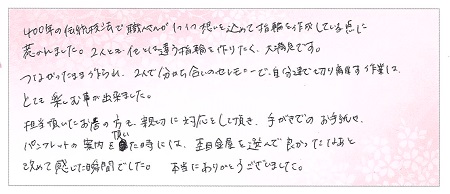 400年の伝統技法で職人さんが1つ1つ想いを込めて指輪を作成している点に
惹かれました。2人とも、他とは違う指輪を作りたく、大満足です。
つながったまま作られ、2人で分かち合いのセレモニーで、自分達で切り離す作業は、
とても楽しむ事が出来ました。
担当頂いたお店の方も、親切に対応をして頂き、手がきでのお手紙や、
パンフレットの案内を頂いた時には、杢目金屋を選んで良かったなぁと
改めて感じた瞬間でした。 本当にありがとうございました。